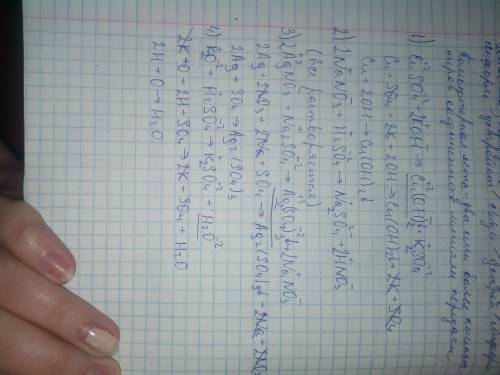 1) CuSO4 + 2KOH → Cu(OH)2↓ + K2SO4
Cu + SO4 + 2K + 2OH → Cu(OH)2↓ + 2K + SO4
Cu + 2OH → Cu(OH)2↓
2) 2NaNO3 + H2SO4 → Na2SO4 + 2HNO3
(все растворяется)
3) 2AgNO3 + Na2SO4 → Ag2(SO4)3↓ + 2NaNO3
2Ag + 2NO3 + 2Na + SO4 → Ag2(SO4)3↓ + 2Na + 2NO3
2Ag + SO4 → Ag2(SO4)3
4) K2O + H2SO4 → K2SO4 + H2O
2K + O + 2H + SO4 → 2K + SO4 + H2O
2H + O → H2O